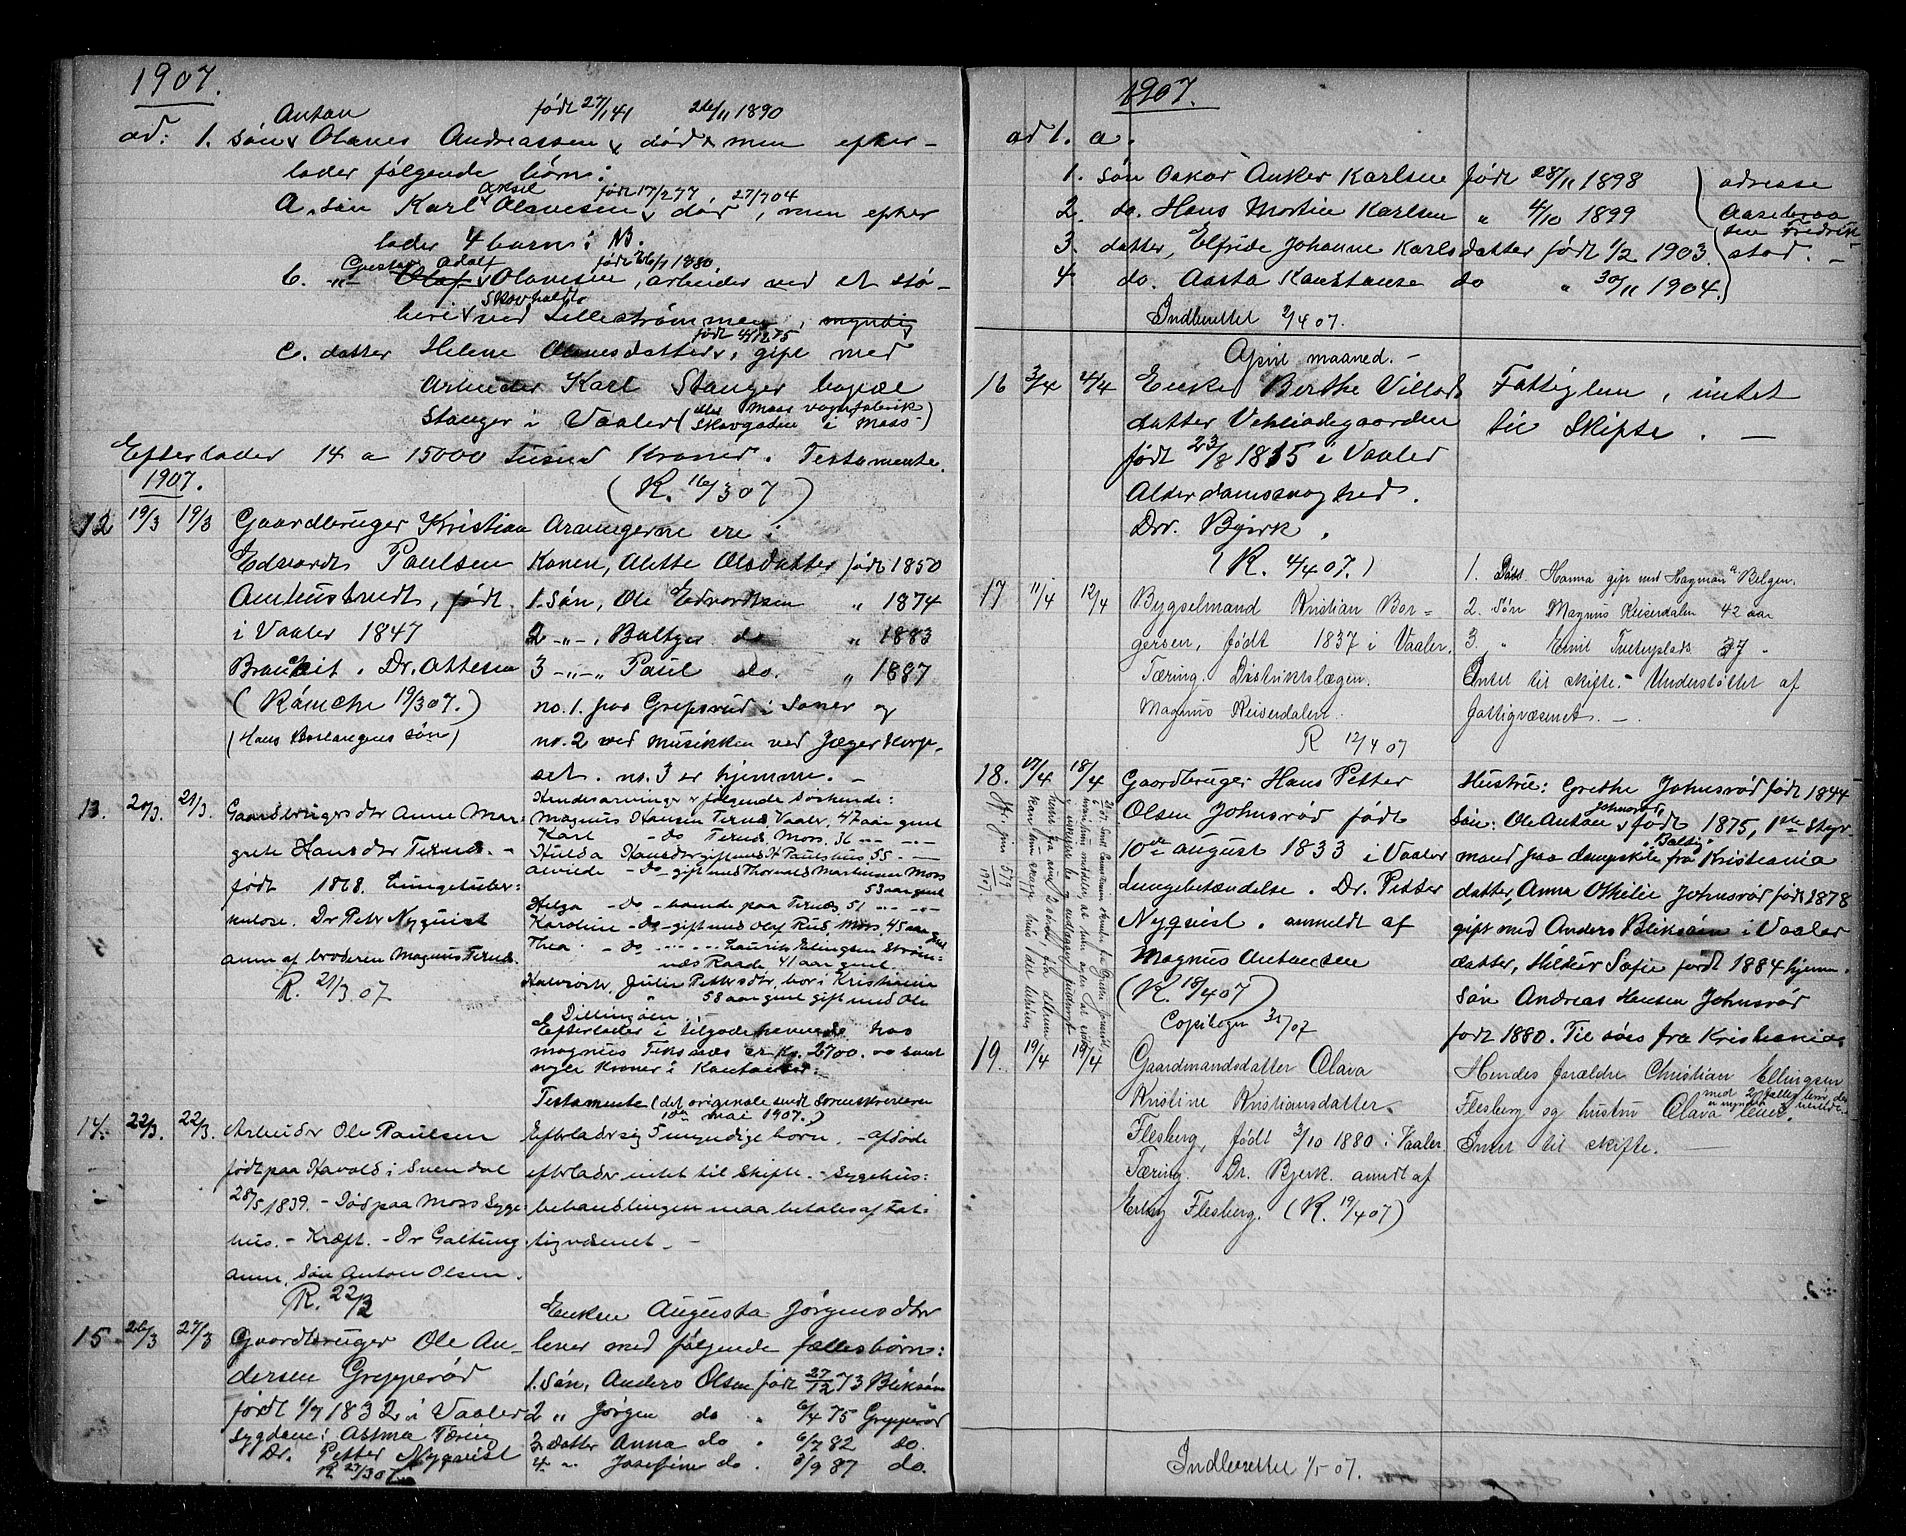 1907.
Anton født 27/1 41 26/11 1890
ad: 1. søn Olaves Andreassen død men efter-
lader følgende børn:
Aksel født 17/2 77, 27/7 04
a. søn Karl Olavesen død, men efter
lader 4 børn: NB.
Gustav Adolf født 26/7 1880
b. -"- Olaf Olavesen, arbeider ved et stø-
Skovholdt
beri ved Lillestrømmen, myndig
født 4/12 75
c. datter Helene Olavesdatter, gift med
Arbeider Karl Stanger bopæl
Stanger i Vaaler (eller Moss vognfabrik
Skovgaden i Moss)
Efterlader 14 a 15000 Tusind Kroner. Testamente.
1907. (R. 16/3 07)
12 19/3 19/3 Gaardbruger Kristian
Edvardt Paulsen
Amhusbrudt, født
i Vaaler 1847
Dr. Ottesen
(Rømche 19/3 07.)
(Hans søn)
Arvingerne ere:
Konen, Alette Olsdatter født 1850
1. Søn, Ole Edvardtsen " 1874
2 -"-, Baltzer do " 1883
3 -"- " Paul do. " 1887
no. 1. paa Grepsrud i Saner og
no. 2 ved musikken ved Jægerkorp-
set. no. 3 er hjemme. -
13. 20/3. 21/3. Gaardbrugersdtr Anne Mar-
grete Hansdtr Ternæs. -
født 1868. Lungetuber-
kulose. Dr Petr Nyquist
anm af broderen Magnus Ternæs.
R. 21/3 07
Hendes arvinger følgende Søskende:
Magnus Hansen Ternæs Vaaler, 47 aar gml
Karl - do Ternæs Moss. 36 -- --
Hulda Hansdtr gift med H Paulshus 55. -
Alvilde - Do - gift med Thorvald Martinsen Moss
53 aar gml
Helga - Do - boende paa Ternæs 51 -- --
Karoline - Do - gift med Olaf Rud, Moss, 45 aar gml
Thea - Do -- -- Laurits Ellingsen Strøm-
næs Raade 41 aar gml.
Halvsøster, Julie Pettersdtr, bor i Kristiania
58 aar gml gift med Ole
Dillingøen. -
Efterlader i tilgodehavende hos
Magnus Ternæs ca Kr. 2700. og
nogle Kroner i Kontanter.
Testamente (det originale sendt Sorenskriveren
10de mai 1907.)
14. 22/3. 22/3. Arbeider Ole Paulsen
født paa Havold i Svendal
28/5 1839. - Død paa Moss Syge-
hus. - Kræft. - Dr Galtung.
anm. Søn Anton Olsen.
R. 22/3
Efterlader sig 5 myndige børn, - Afdøde
efterlader intet til Skifte. - Sygehus:
behandlingen maa betales af Fat-
tigvæsenet. -
15 26/3 27/3 Gaardbruger Ole An-
dersen Grepperød
født 1/7 1832 i Vaaler
Sygdom: Astma Tæring
Dr. Petter Nyqvist
R 27/3 07
Enken Augusta Jørgensdtr
lever med følgende fællesbørn:
1. Søn, Anders Olsen født 27/12 73 Bliksøen
2 " Jørgen do " 6/4 75 Grepperød
3. datter Anna do " 6/7 82 do.
4. " Josefine do " 3/9 87 do.
1907.
ad 1. a.
1. søn Oskar Anker Karlsen født 28/11 1898
2. do. Hans Martin Karlsen " 4/10 1899
3. datter, Elfride Johanne Karlsdatter født 1/2 1903.
4 do. Aasta Konstanse do " 30/11 1904.
adresse
Fredrik-
stad. -
Indberettet 2/4 07.
April maaned. -
16 3/4 4/4 Enke Berthe Villads
datter Vestiadegaarden
født 23/8 1815 i Vaaler
Alderdomssvaghed.
Dr. Bjerk.
(R. 4/4 07.)
Fattiglem, intet
til Skifte. -
17 11/4 12/4 Bygselmand Kristian Bor-
gersen, født 1837 i Vaaler.
Tæring. Distriktslægen.
Magnus Reiserdalen.
R 12/4 07
1. Datt. Hanna gift med Hagman i Belgen.
2. Søn Magnus Reiserdalen 42 aar
3 " Emil 37 "
Intet til skifte. - Understøttet af
fattigvæsenet. -
18. 17/4 18/4 Gaardbruger Hans Petter
Olsen Johnsrød født
10de august 1833 i Vaaler
Lungebetændelse. Dr. Petter
Nyqvist. anmeldt af
Magnus Antonsen
(R. 18/4 07)
Copibogen 3/5 07
Hustru: Grethe Johnsrød født 1844
Johnsrød,
Søn: Ole Anton født 1875, 1ste Styr-
"Baltig"
mand paa dampskib fra Kristiania
datter, Anna Othilie Johnsrød født 1878
gift med Anders Bliksøen i Vaaler
datter, Hilder Sofie født 1884 hjemme.
Søn Andreas Hansen Johnsrød
født 1880. Til søs fra Kristiania.
19. 19/4 19/4 Gaardmandsdatter Olava
Kristine Kristiansdatter.
Flesberg, født 3/10 1880 i Vaaler
Tæring. Dr. Bjerk. anmdt af
Erling Flesberg. (R. 19/4 07)
Hendes forældre Christian Ellingsen
Flesberg og hustru Olava lever.
Intet til skifte. -
Indberettet 1/5 07.